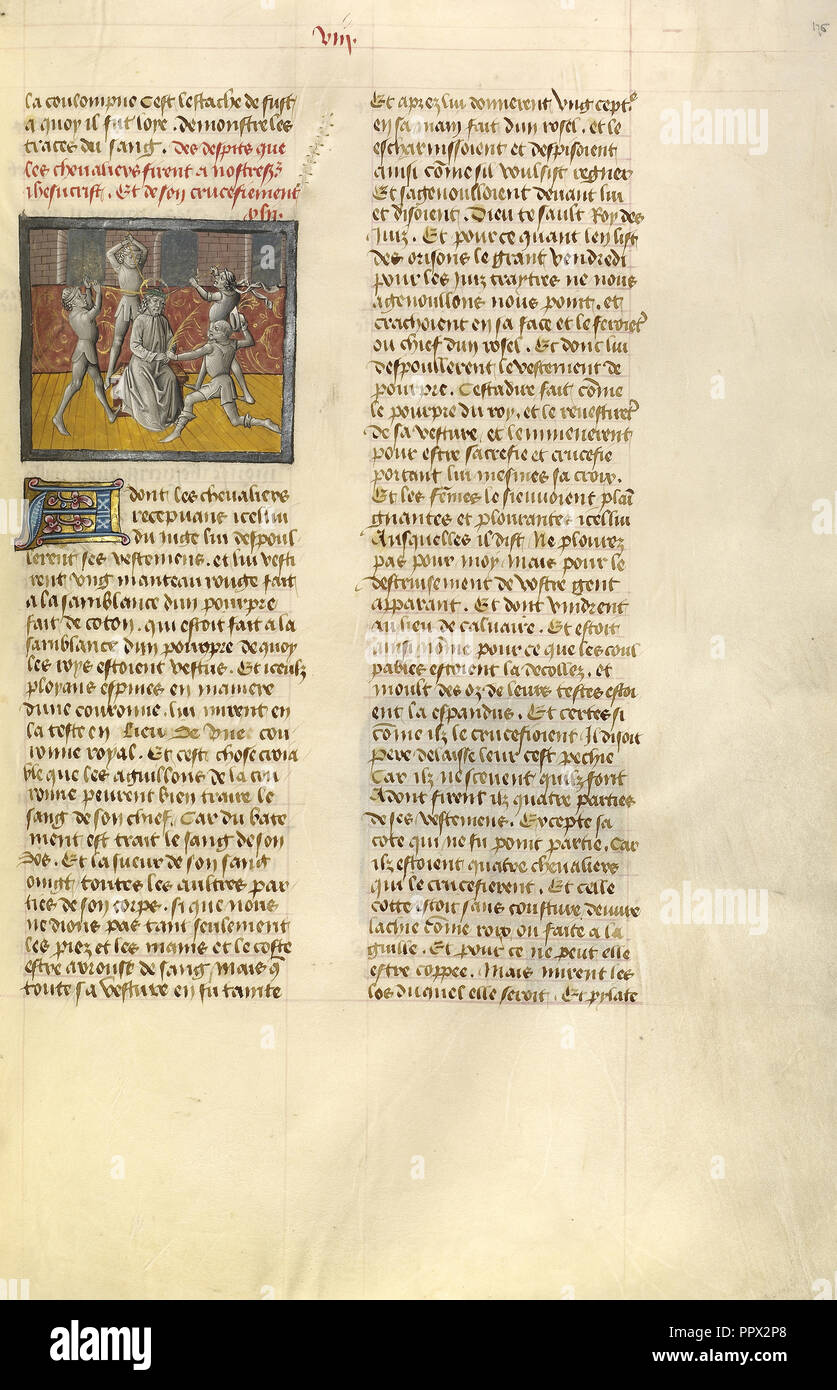 viij.
176
la coulompne Cest lestache de fust
a quoy il fut loye . demonstre les
traces du sang . Des despits que
les chevaliers firent a nostre sr
ihesucrist . Et de son crucefiement
xlii.
Adont les chevaliers
recepvans icellui
du juge lui despoul
lerent ses vestemens . et lui vesti
rent ung manteau rouge fait
a la samblance dun pourpre
fait de coton . qui estoit fait a la
samblance dun pourpre de quoy
les roys estoient vestus . Et iceulz
ployans espines en maniere
dune couronne . lui mirent en
la teste en lieu de une cou
ronne royal . Et cest chose croia
ble que les aguillons de la cou
ronne peurent bien traire le
sang de son chief . Car du bate
ment est trait le sang de son
dos . Et la sueur de son sang
oingt toutes les aultres par
ties de son corps . si que nous
ne dions pas tant seulement
les piez et les mains et le coste
estre arrouse de sang , mais q
toute sa vesture en fu tainte
Et aprez lui donnerent ung cept
en sa main fait dun rosel . et le
escharnissoient et despisoient
ainsi come sil voulsist regner
Et sagenoulloient devant lui
et disoient . Dieu te sault Roy des
Juiz . Et pource quant len list
des orisons le grant vendredi
pour les Juiz traytres ne nous
agenoullons nous point . et
crachoient en sa face et le feroiet
ou chief dun rosel . Et donc lui
despoullerent le vestement de
pourpre . Cestadire fait come
le pourpre du roy , et le revestiret
de sa vesture , et lemmenerent
pour estre sacrefie et crucefie
portant lui mesmes sa croix .
Et les femes le sieuvoient plai
gnantes et plourantes icellui
Ausquelles il dist Ne plourez
pas pour moy , mais pour le
destruisement de vostre gent
apparant . Et dont vindrent
au lieu de calvaire . Et estoit
ainsi nome pour ce que les coul
pables estoient la decollez . et
moult des oz de leurs testes estoi
ent la espandus . Et certes si
come ilz le crucefioient Il disoit
Pere delaisse leur cest pechie
Car ilz ne scevent quilz font
Adont firent ilz quatre parties
de ses vestemens . Excepte sa
cote qui ne fu point partie . Car
ilz estoient quatre chevaliers
qui le crucefierent . Et celle
cotte estoit sans cousture deuvre
lachie come roix ou faite a la
guille . Et pour ce ne peut elle
estre coppee . Mais mirent les
los duquel elle seroit . Et pylate
alamy
Image ID: PPX2P8
www.alamy.com